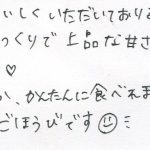 いしくいただいております
っくりで上品な甘さ
♡
か、かんたんに食べれま
ごほうびです☺